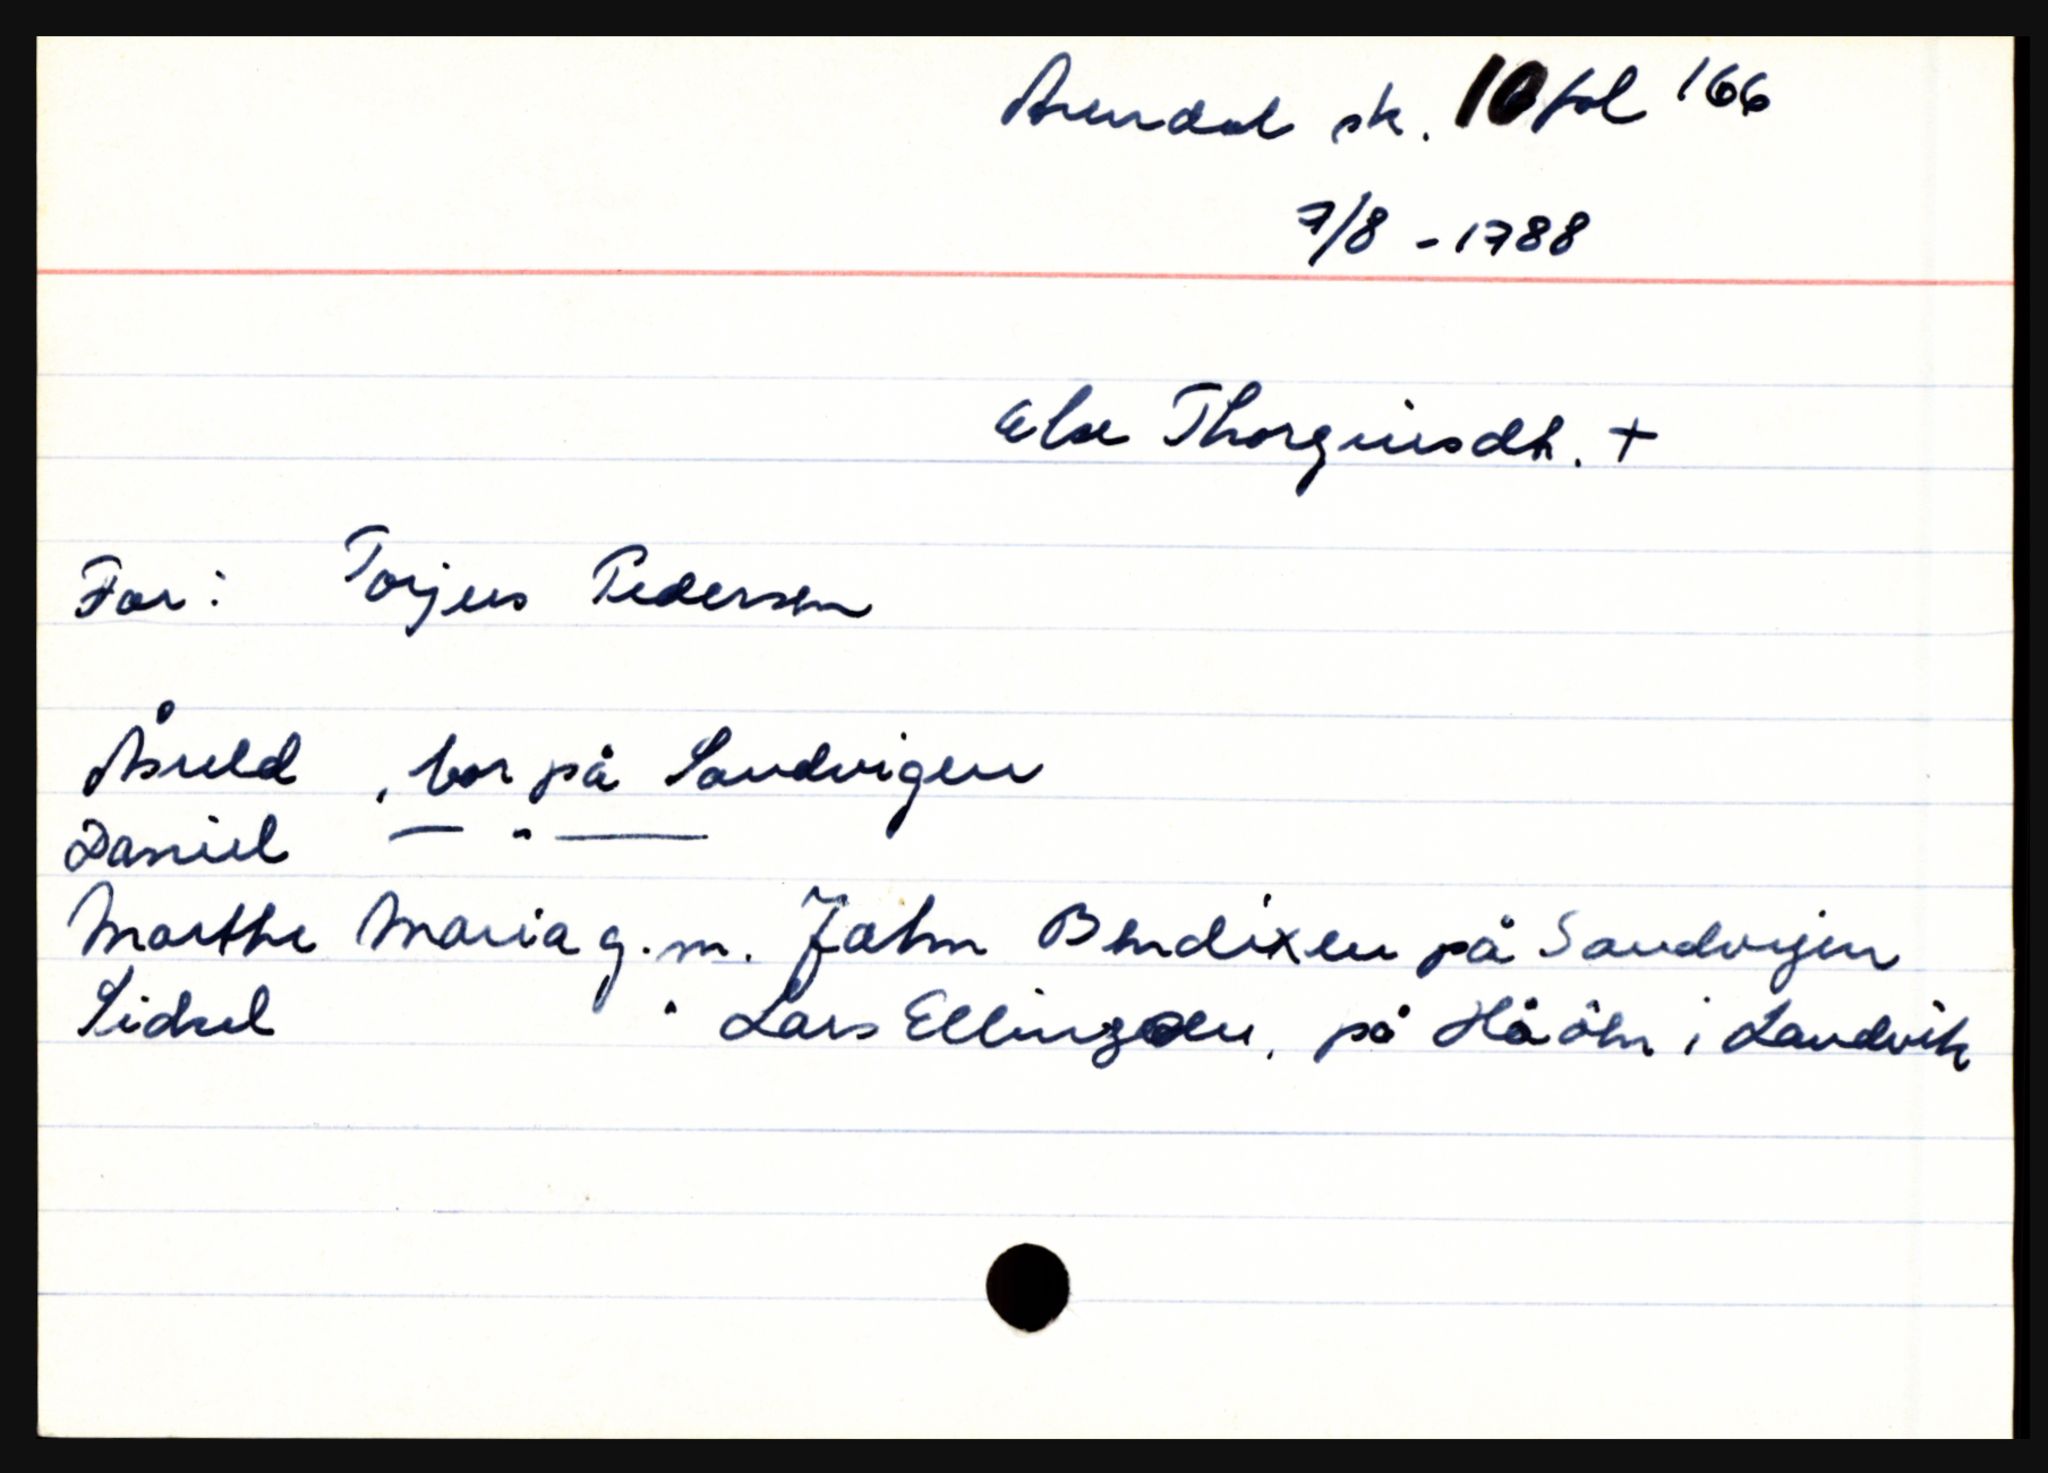 Arendal sk. 10 fol 166
7/8 - 1788
Else Thorgiusdt. +
Far: Torjus Pedersen
Åsuld, bor på Sandvigen
Daniel — " —
Marthe Maria g.m. Jahn Bendixen på Sandvigen
Sidsel " Lars Ellingsen, på Hååhn i Landvik